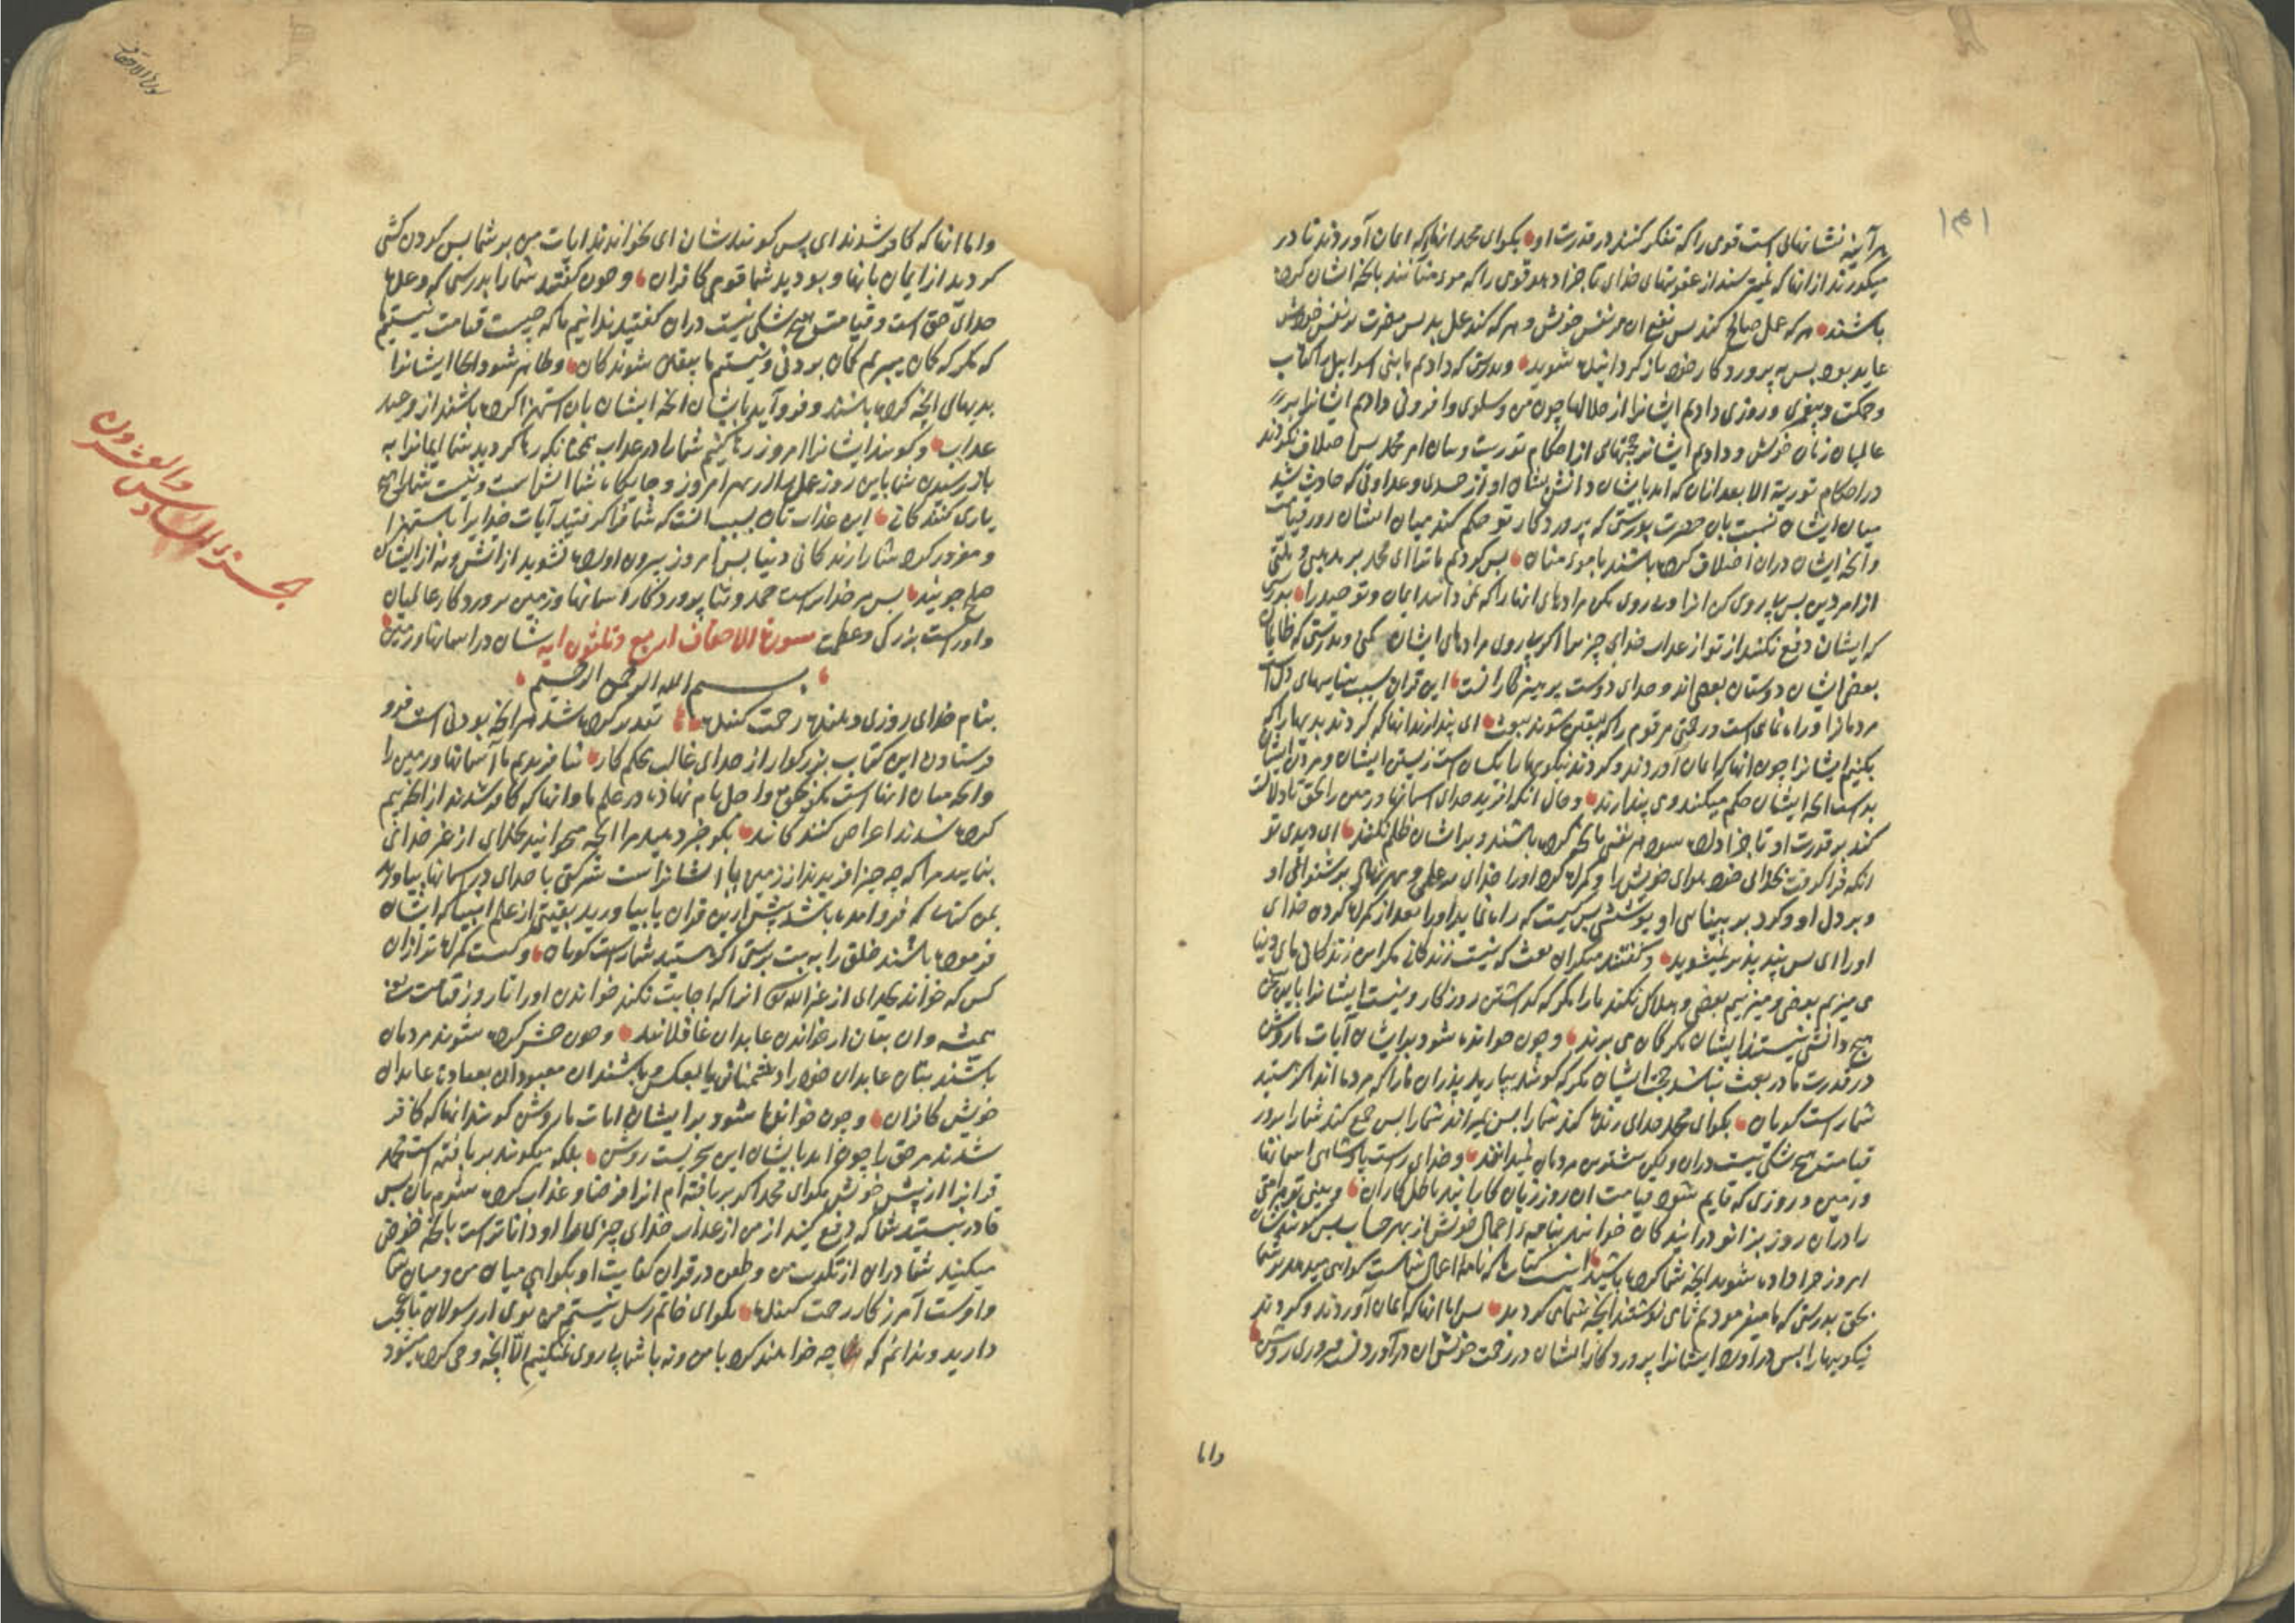 هر آینه نشانهائی است قومی را که تفکر کنند در قدرت او بکو ای محمد انها را که ایمان آوردند تا در
میکذرند از انها که نمیترسند از عقوبتهای خدای تا جزا دهد قومی را که مومنانند بانچه ایشان کرده
باشند هر که عمل صالح کند پس نفع ان مر نفس خویش و هر که کند عمل بد پس مضرت بر نفس خویش
عاید بود پس به پروردکار خود باز کردانیده شوید و بدرستی که دادیم ما بنی اسرائیل را کتاب
و حکمت و پیغمبری و روزی دادیم ایشانرا از حلالها چون من و سلوی و افزونی دادیم ایشانرا بر
عالمیان زمان خویش و دادیم ایشانرا حجتهای از احکام توریت و بیان امر محمد پس اختلاف نکردند
در احکام توریة الا بعد ازان که امد بایشان دانش نشان او از حسدی و عداوتی که حادث شد
میان ایشان نسبت بان حضرت بدرستی که پروردکار تو حکم کند میان ایشان روز قیامت
و انچه ایشان دران اختلاف کرده باشند با مومنان پس کردیم ما ترا ای محمد بر مذهبی و ملتی
از امر دین پس پیروی کن انرا و پیروی مکن مرادهای انها را که نمی دانند ایمان و توحید را بدرستی
که ایشان دفع نکنند از تو از عذاب خدای چیزی اکر پیروی مرادهای ایشان کنی و بدرستی که ظالمان
بعضی ایشان دوستان بعضی اند و خدای دوست پرهیزکارانست این قران سبب بیناییهای دل است
مردمانرا و راه نمای است و رحمتی مر قوم را که بیقین شوند ببعث ای پندارند انها که کردند بدیها را که
بکنیم ایشانرا چون انها که ایمان آوردند و کردند نیکویها را یکسان است زیستن ایشان و مردن ایشان
بد است انچه ایشان حکم میکنند و می پندارند و حال انکه افرید خدای اسمانها و زمین را بحق تا دلالت
کند بر قدرت او تا جزا داده شود هر نفسی بانچه کرده باشند و بر ایشان ظلم نکنند ای دیدی تو
انکه فرا کرفت بخدائی خود هوای خویش را و کمراه کرد او را خدای بر علمی و مهر نهاد بر شنوائی او
و بر دل او و کرد بر بینائی او پوششی پس کیست که راه نماید او را بعد از کمراه کردن خدای
او را ای پس پند پذیر نمیشوید و کفتند منکران بعث که نیست زندکانی مکر این زندکانی مای دنیا
می میریم بعضی و میزییم بعضی و هلاک نکند ما را مکر که کذشتن روزکار و نیست ایشانرا باین سخن
هیچ دانشی نیستند ایشان مکر کمان می برند و چون خوانده شود بر ایشان آیات ما روشن
در قدرت ما در بعث نباشد حجت ایشان مکر که کویند بیارید پدران ما را که مرده اند اکر هستید
شما راست کویان بکو ای محمد خدای زنده کند شما را پس بمیراند شما را پس جمع کند شما را بروز
قیامت هیچ شکی نیست دران و لیکن بیشترین مردمان نمیدانند و خدای راست پادشاهی اسمانها
و زمین و روزی که قایم شود قیامت ان روز زیان کارانند باطل کاران و بینی تو هر امتی
را دران روز بزانو درایندکان خوانند بنامه اعمال خویش از بهر حساب پس کویندشان
امروز جزا داده شوید انچه شما کرده باشید این است کتاب ما که نامه اعمال شماست کواهی میدهد بر شما
بحق بدرستی که ما میفرمودیم تا می نوشتند انچه شما می کردید پس اما انها که ایمان آوردند و کردند
نیکویها را پس دراورد ایشانرا پروردکار ایشان در رحمت خویش ان دراوردنست پیروزی روشن
و اما
و اما انها که کافر شدند ای پس کویندشان ای نخواندند ایات من بر شما پس کردن کشی
کردید از ایمان بانها و بودید شما قومی کافران و چون کفتند شما را بدرستی که وعده
خدای حق است و قیامت هیچ شکی نیست دران کفتید ندانیم ما که چیست قیامت نیستیم
که مکر که کمان میبریم کمان بردنی و نیستیم ما بیقین شوندکان و ظاهر شود انجا ایشانرا
بدیهای انچه کرده باشند و فرو آید بایشان انچه ایشان بان استهزا کرده باشند از
عذاب و کویند ایشانرا امروز رها کنیم شما را در عذاب همچنانکه رها کردید شما ایمانرا به
باز رسیدن شما باین روز و جایکاه شما اتش است و نیست شما را هیچ
یاری کنندکانی این عذاب تان بسبب انست که شما فرا کرفتید آیات خدایرا باستهزا
و مغرور کرد شما را زندکانی دنیا پس امروز بیرون اورده نشوید از اتش و نه از ایشان
صلح جویند پس مر خدایراست حمد و ثنا پروردکار اسمانها و زمین پروردکار عالمیان
و اوراست بزرکی و عظمت سورة الاحقاف اربع و ثلثون ایه شان در اسمانها و زمین
بسم الله الرحمن الرحیم
بنام خدای روزی دهنده رحمت کننده تقدیر کرده شد هر انچه بودنی است فرو
فرستادن این کتاب بزرکوار از خدای غالب محکم کار نیافریدیم ما آسمانها و زمین را
و انچه میان اینها است مکر بحق و اجل نام نهاده در علم ما و انها که کافر شدند از انچه بیم
کرده شدند اعراض کنندکانند بکو خبر دهید مرا انچه میخوانید بخدای از غیر خدای
بنمایید مرا که چه چیز افریدند از زمین یا ایشانراست شرکتی با خدای در اسمانها بیاورید
بمن کتابی که فرو امده باشد پیش ازین قران یا بیاورید بقیتی از علم انبیا که ایشان
فرموده باشند خلق را به بت پرستی اکر هستید شما راست کویان و کیست کمراه تر ازان
کس که خواند بخدای از غیر الله انها که اجابت نکند خواندن او را تا روز قیامت یعنی
همیشه و ان بتان از خواندن عابدان غافلانند و چون حشر کرده شوند مردمان
باشند بتان عابدان خود را دشمنانی یا بعکس و باشند ان معبودان بعبادت عابدان
خویش کافران و چون خوانده شود بر ایشان ایات ما روشن کویند انها که کافر
شدند مر حق را چون امد بایشان این سحریست روشن بلکه میکویند بر بافته است محمد
قرانرا از پیش خویش بکو ای محمد اکر بر بافته ام انرا فرضا و عذاب کرده شوم بان پس
قادر نیستید شما که دفع کنید از من از عذاب خدای چیزی را او داناتر است بانچه خوض
میکنید شما دران از تکذیب من و طعن در قران کفایت او بکواهی میان من و میان شما
و اوست آمرزکار رحمت کننده بکو ای خاتم رسل نیستم من نوی از رسولان تا عجب
دارید و ندانم که چه خواهند کرد با من و نه با شما پیروی نمیکنیم الا انچه وحی کرده میشود
الجزء السادس والعشرون
سورة الاحقاف